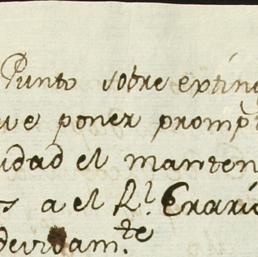 Punto sobre extinc
ve poner prompt
idad el manten
s a el Rl. Erari
devidam.te